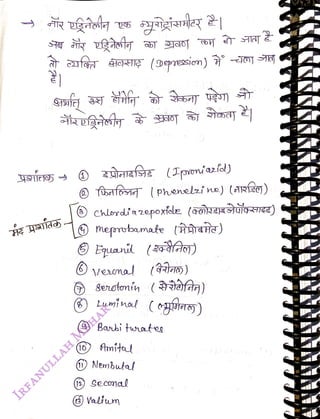 → नॉर एड्रिनेलीन एक न्यूरोट्रांसमीटर है।
जब नॉर एड्रिनेलीन का श्रवण कम हो जाता है
तो व्यक्ति अवसाद (Depression) में चला जाता
है।
अर्थात् इस हॉर्मोन को रोकना पड़ेगा जो
नॉरएड्रिनेलीन के श्रवण को रोकता है।
प्रशांतक → ① इप्रोनाइजिड (Iproniazid)
② फिनल्जिन (Phenelzine) (नारडिल)
मंद प्रशांतक ③ Chlordiazepoxide (क्लोरडाइजेपॉक्साइड)
④ Meprobamate (मेप्रोबमेट)
⑤ Equanil (इक्वैनिल)
⑥ Veronal (वेरोनल)
⑦ Serotonin (सेरोटोनिन)
⑧ Luminal (ल्युमिनल)
⑨ Barbiturates
⑩ Amital
⑪ Nembutal
⑫ Seconal
⑬ Valium